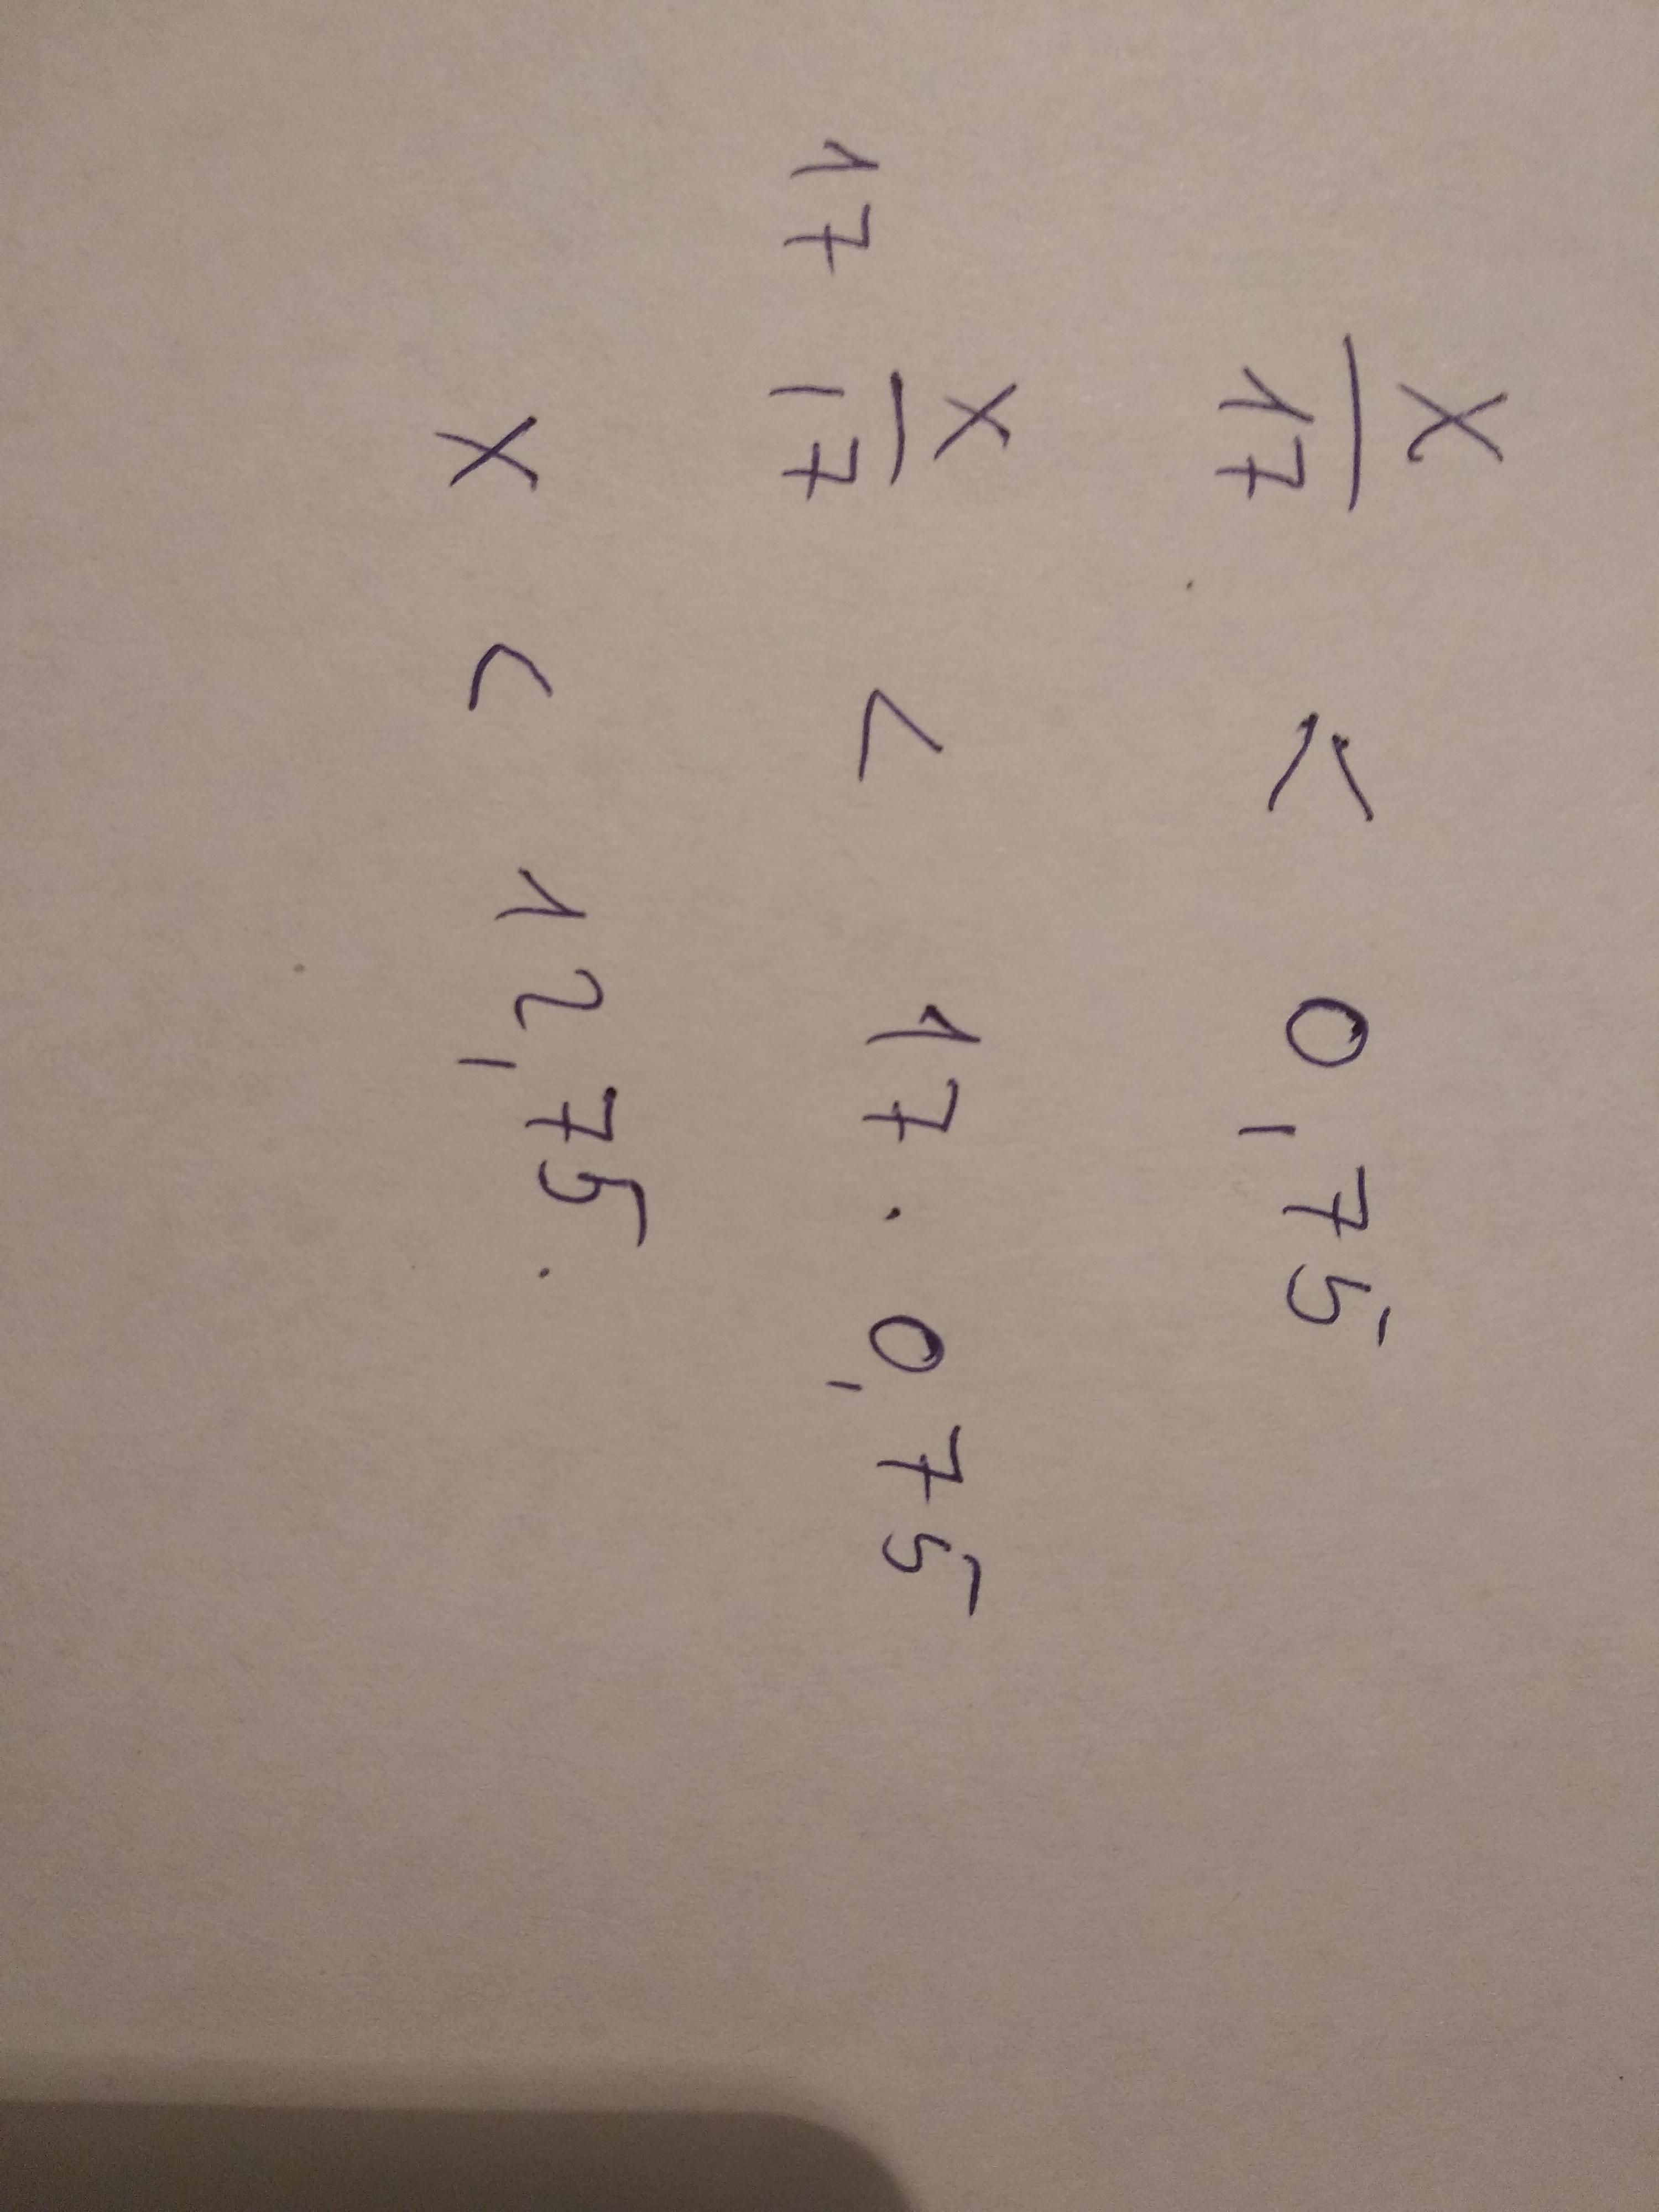 x/17 < 0,75
17 x/17 < 17 · 0,75
x < 12,75.